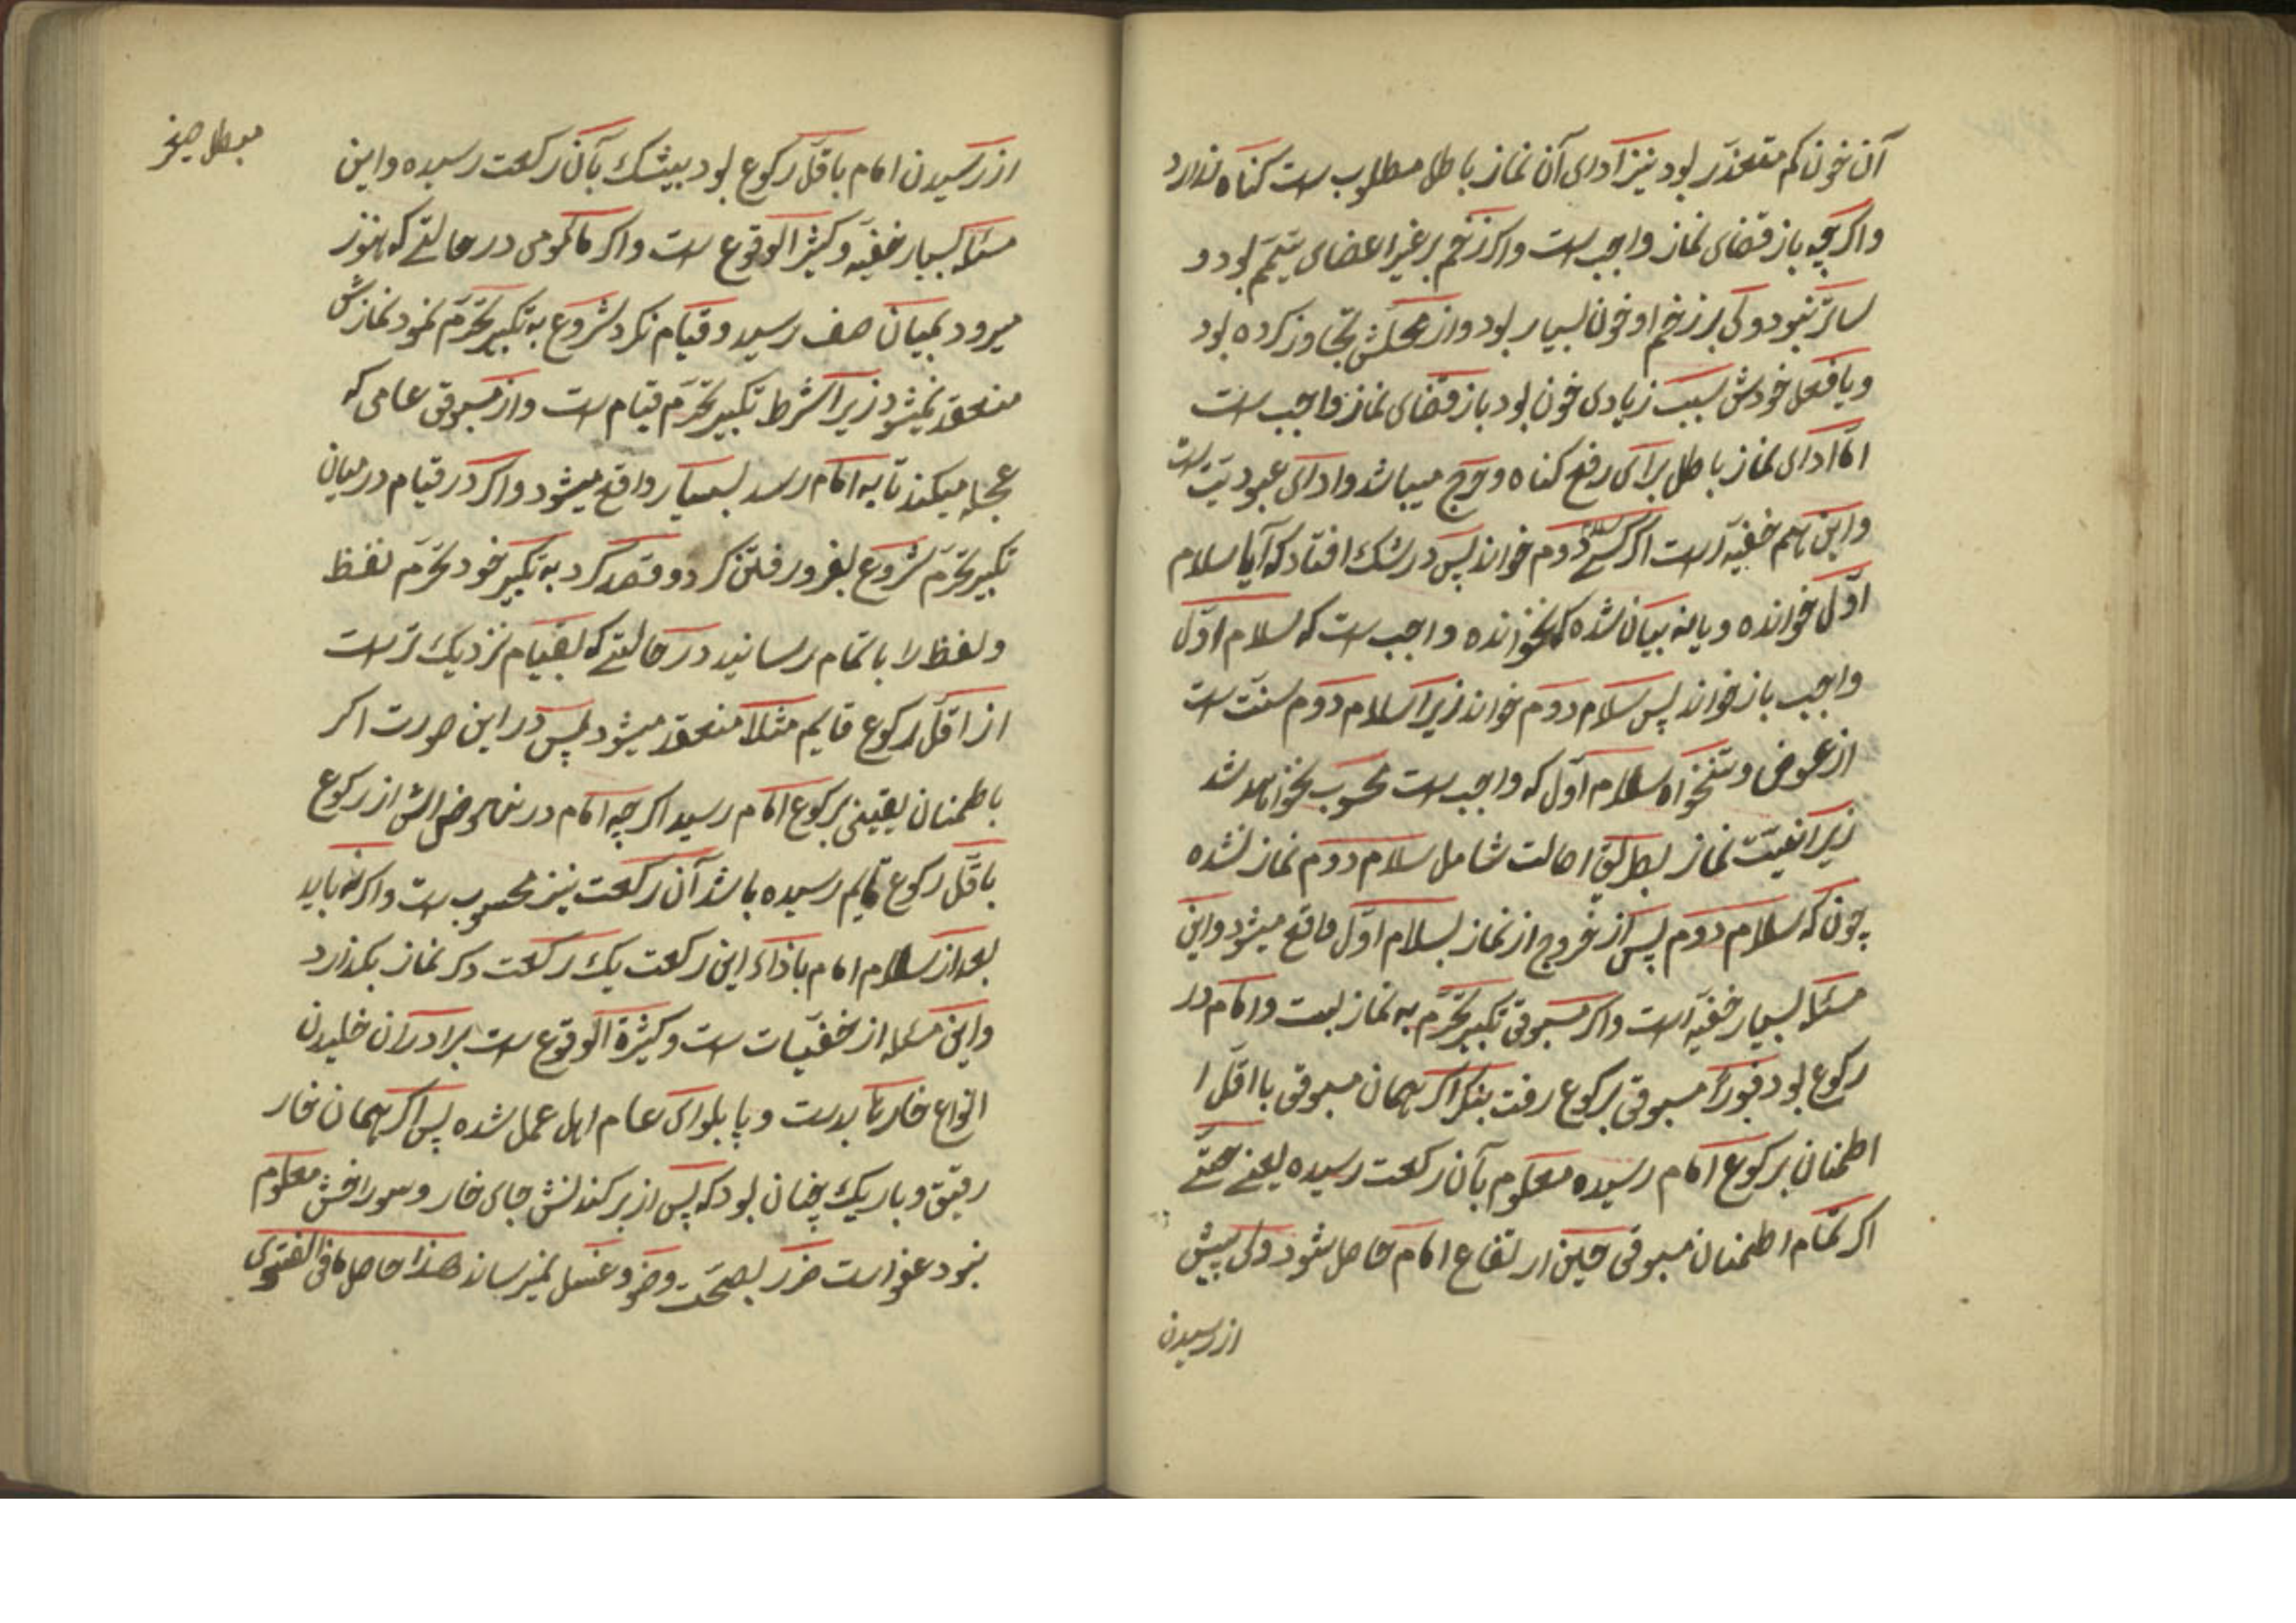 آن خون کم متعذر بود نیز ادای آن نماز باطل مطلوب است کناه ندارد
واکرچه باز قضای نماز واجب است واکر زخم بر غیر اعضای تیمّم بود و
ساتر نبود ولی بر زخم او خون بسیار بود واز محلّش تجاوز کرده بود
ویا فعل خودش سبب زیادی خون بود باز قضای نماز واجب است
امّا ادای نماز باطل برای رفع کناه وحرج میباشد وادای عبودیّت است
واین هم خفیّه است اکر کسی سلام دوم خواند پس در شک افتاد که آیا سلام
اوّل خوانده ویا نه بیان شده که نخوانده واجب است که سلام اوّل
واجب باز خواند پس سلام دوم خواند زیرا سلام دوم سنّت است
از عوض وتنخواه سلام اوّل که واجب است محسوب نخواهد شد
زیرا نیّت نماز بطریق اصالت شامل سلام دوم نماز نشده
چون که سلام دوم پس از خروج از نماز بسلام اوّل واقع میشود واین
مسئله بسیار خفیّه است واکر مسبوقی تکبیر تحرّم به نماز بست وامام در
رکوع بود فوراً مسبوقی برکوع رفت بنکر اکر همان مسبوقی با اقلّ ا
اطمنان برکوع امام رسیده معلوم بآن رکعت رسیده یعنی حتّی
اکر تمام اطمنان مسبوقی حین ارتفاع امام حاصل شود ولی پیش
از رسیدن
از رسیدن امام باقلّ رکوع بود بیشک بآن رکعت رسیده واین
مسئله بسیار خفیّه وکثیر الوقوع است واکر مامومی در حالتی که هنوز
میرود بمیان صف رسید وقیام نکرد شروع به تکبیر تحرّم نمود نمازش
منعقد نمیشود زیرا شرط تکبیر تحرّم قیام است واز مسبوقی عامی که
عجله میکند تا به امام رسد بسیار واقع میشود واکر در قیام در میان
تکبیر تحرّم شروع بفرو رفتن کرد وقصد کرد به تکبیر خود تحرّم فقط
ولفظ را باتمام رسانید در حالتی که بقیام نزدیک تر است
از اقلّ رکوع قایم مثلا منعقد میشود پس در این صورت اکر
باطمنان یقینی برکوع امام رسید اکر چه امام در از رکوع
باقلّ رکوع قایم رسیده باشد آن رکعت نیز محسوب است واکر نه باید
بعد از سلام امام باذاء این رکعت یک رکعت دکر نماز بکذارد
واین مسئله از خفیّات است وکثیرة الوقوع است برادران خلیدن
انواع خارها بدست وپا بلوای عام اهل عمل شده پس اکر همان خار
رقیق وباریک چنان بود که پس از بر کندنش جای خار وسوراخش معلوم
نبود عفو است ضرر بصحّت وضو وغسل نمیرساند هذا حاصل ما فی الفتوی